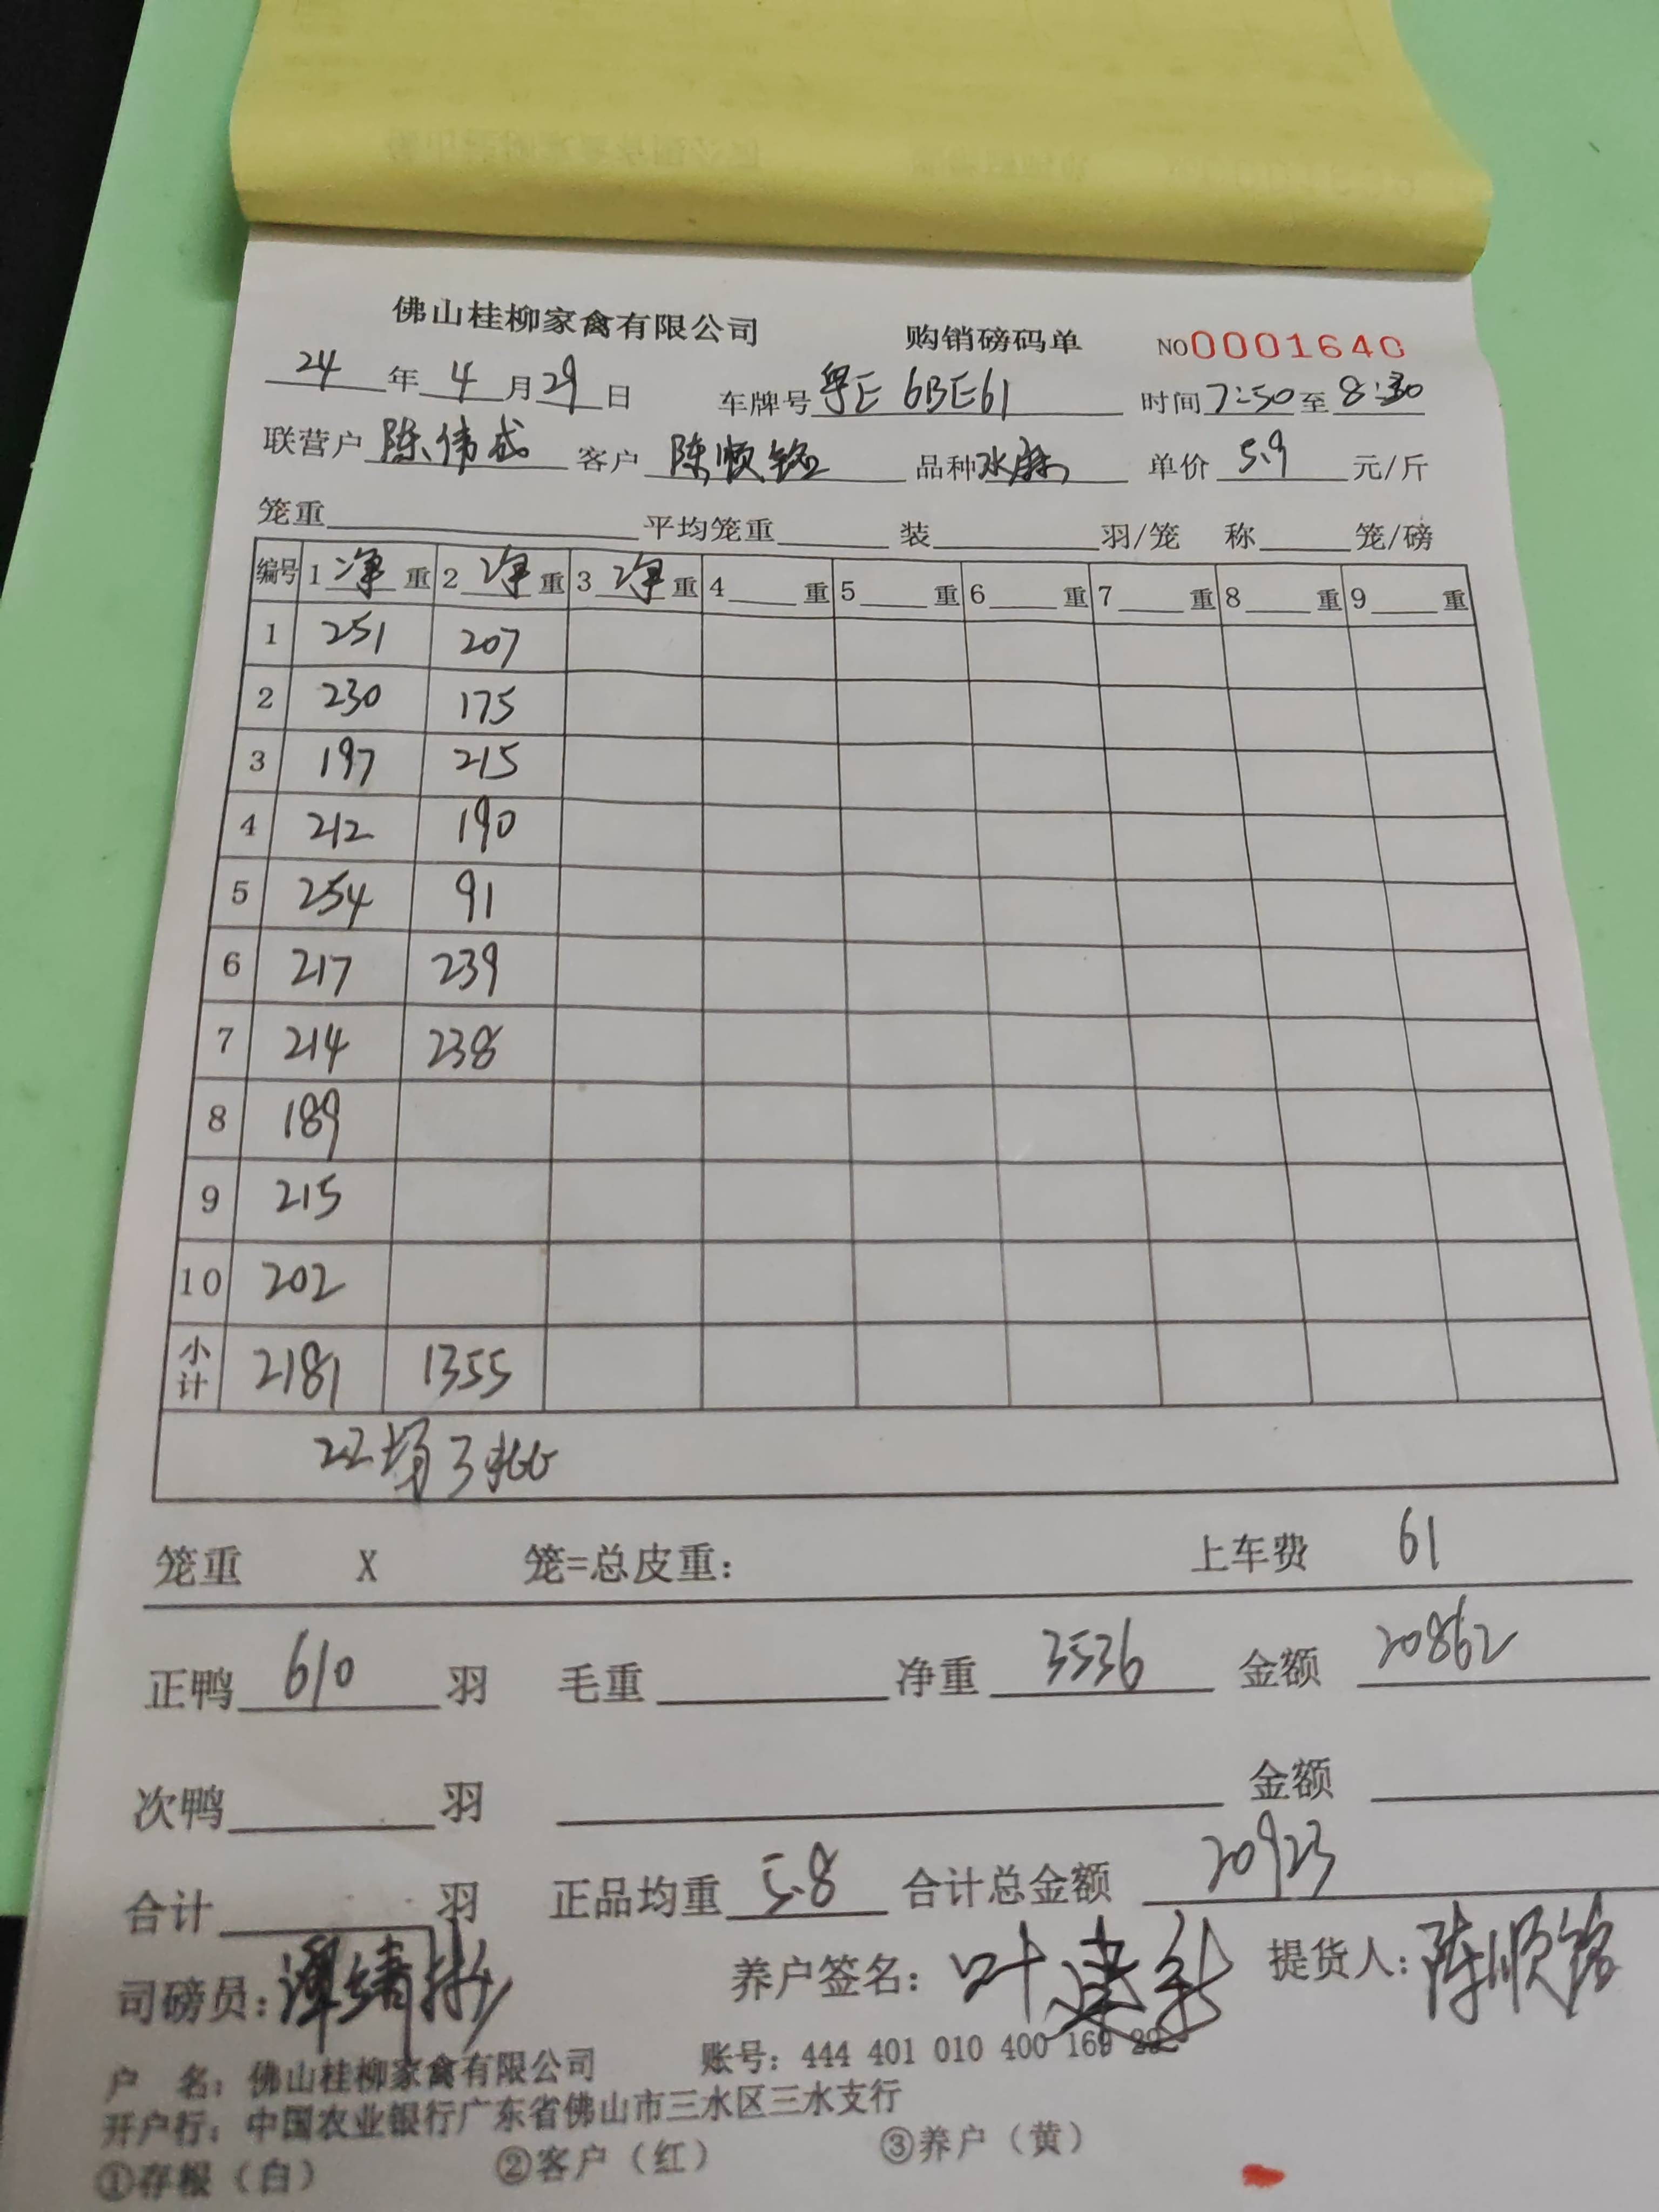 佛山桂柳家禽有限公司 购销磅码单 NO0001640
24年4月29日 车牌号粤E 6BE61 时间7:50至8:30
联营户陈伟 客户陈顺铭 品种水麻 单价5.9元/斤
笼重 平均笼重 装 羽/笼 称 笼/磅
编号 1净重 2净重 3净重 4重 5重 6重 7重 8重 9重
1 251 207
2 230 175
3 197 215
4 212 190
5 254 91
6 217 239
7 214 238
8 189
9 215
10 202
小计 2181 1355
笼重 X 笼=总皮重: 上车费 61
正鸭610羽 毛重 净重3536 金额20862
次鸭 羽 金额
合计 羽 正品均重5.8 合计总金额20923
司磅员: 养户签名:叶建 提货人:陈顺铭
户 名:佛山桂柳家禽有限公司 账号:444 401 010 400 169
开户行:中国农业银行广东省佛山市三水区三水支行
①存根(白) ②客户(红) ③养户(黄)